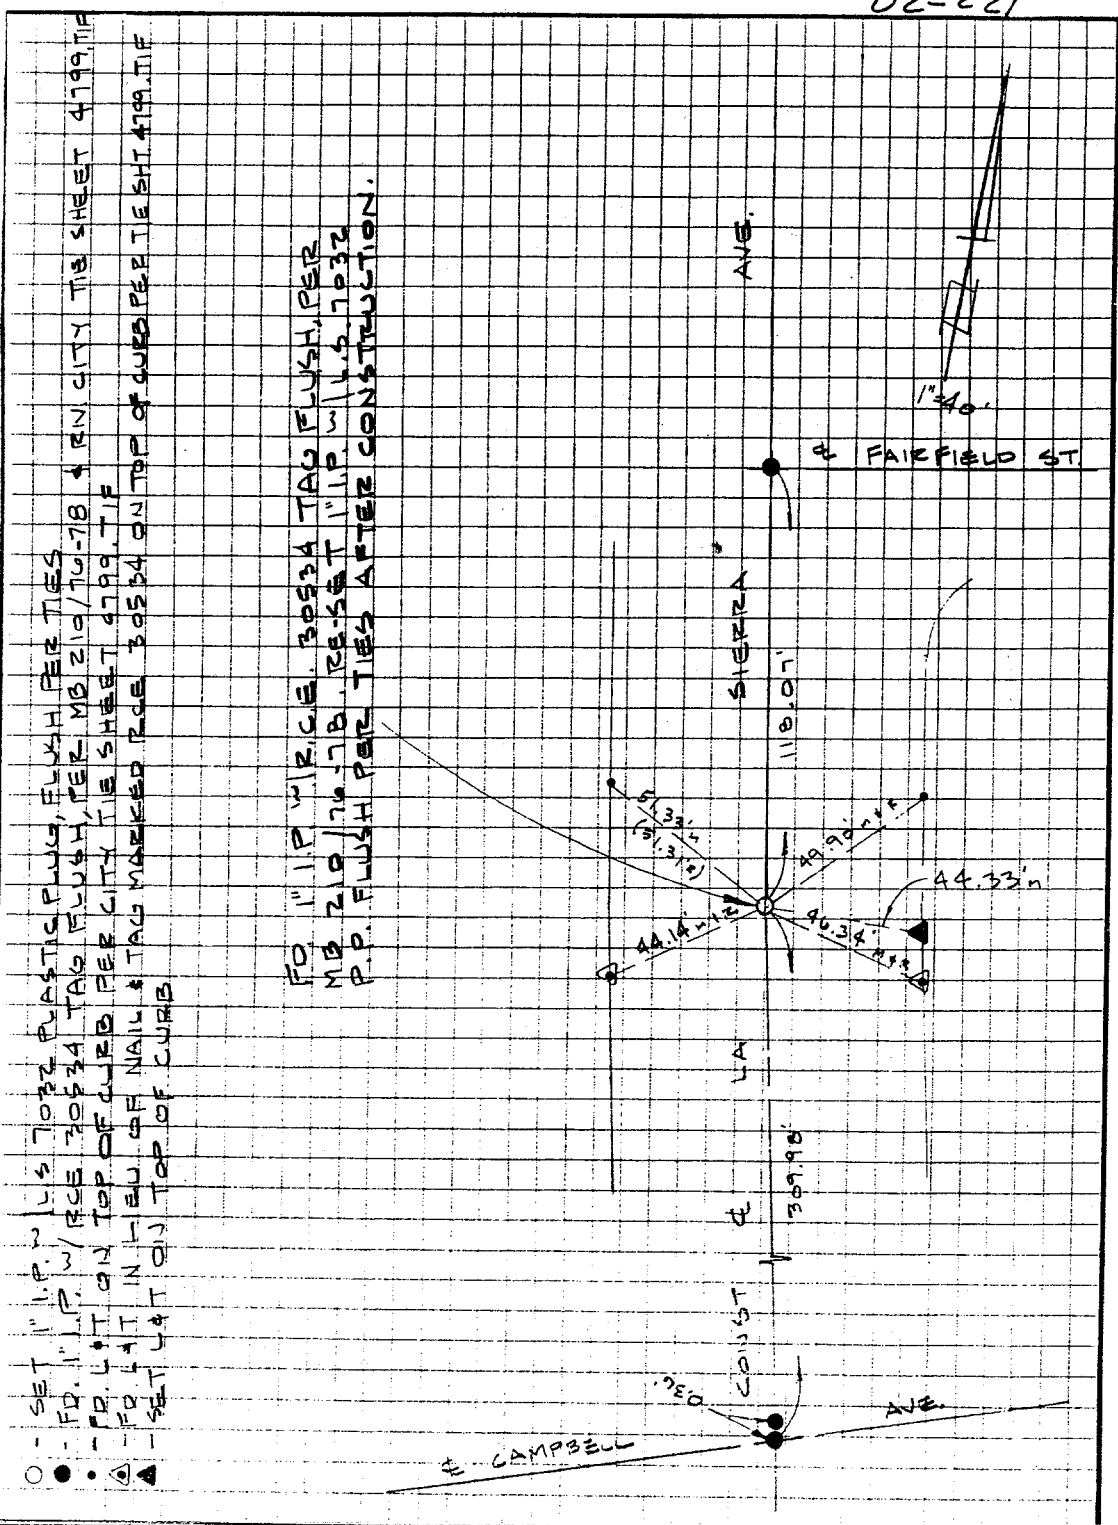 02-221
○ - SET 1" I.P. W/ L.S 7032 PLASTIC PLUG, FLUSH PER TIES
● - FD. 1" I.P. W/ RCE 30534 TAG FLUSH, PER MB 210/76-78 & RN. CITY TIE SHEET 4799.TIF
• - FD. L&T ON TOP OF CURB PER CITY TIE SHEET 4799.TIF
- FD L&T IN LIEU OF NAIL & TAG MARKED RCE 30534 ON TOP OF CURB PER TIE SHT 4799.TIF
▲ - SET L&T ON TOP OF CURB
FD. 1" I.P. W/ R.C.E. 30534 TAG FLUSH, PER
MB 210/76-78. RE-SET 1" I.P. W/ L.S. 7032
P.P. FLUSH PER TIES AFTER CONSTRUCTION.
CONST ℄ LA SIERRA AVE.
309.98'
118.07'
51.33'm
(51.31'R)
49.90'm&R
44.14'm&R
46.34' M&R
44.33'm
0.36'
℄ CAMPBELL AVE.
℄ FAIRFIELD ST.
1"=40'